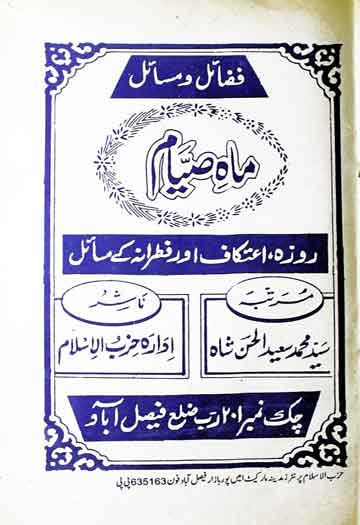 فضائل و مسائل
ماہِ صیام
روزہ، اعتکاف اور فطرانہ کے مسائل
مرتبہ
سید محمد سعید الحسن شاہ
ناشر
ادارہ حزب الاسلام
چک نمبر ۲۰۱ رب ضلع فیصل آباد
حزب الاسلام پرنٹرز مدینہ مارکیٹ امیں پور بازار فیصل آباد فون 635163 پی پی